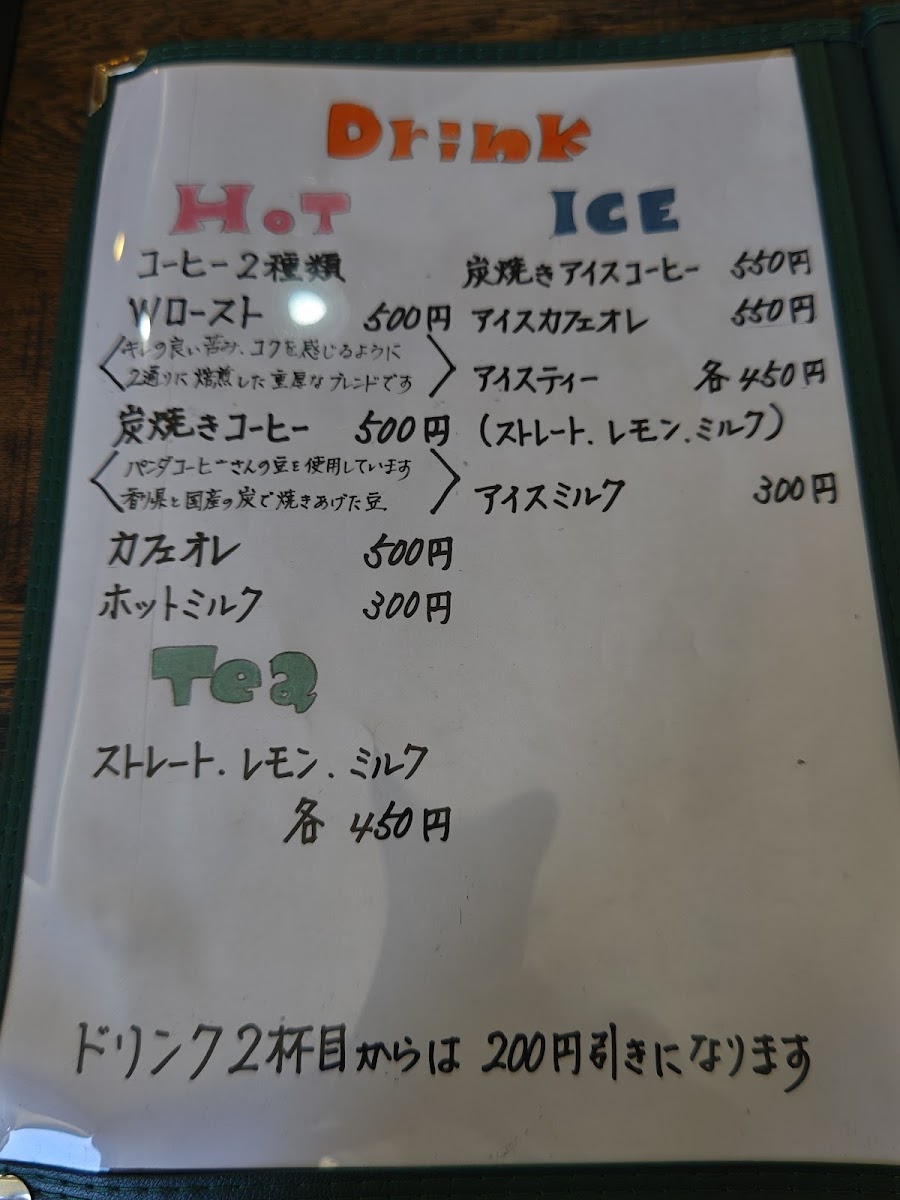 Drink
HOT
コーヒー2種類
Wロースト 500円
キレの良い苦み、コクを感じるように
2通りに焙煎した重厚なブレンドです
炭焼きコーヒー 500円
パンダコーヒーさんの豆を使用しています
香川県と国産の炭で焼きあげた豆
カフェオレ 500円
ホットミルク 300円
Tea
ストレート.レモン.ミルク
各 450円
ICE
炭焼きアイスコーヒー 550円
アイスカフェオレ 550円
アイスティー 各450円
(ストレート.レモン.ミルク)
アイスミルク 300円
ドリンク2杯目からは 200円引きになります